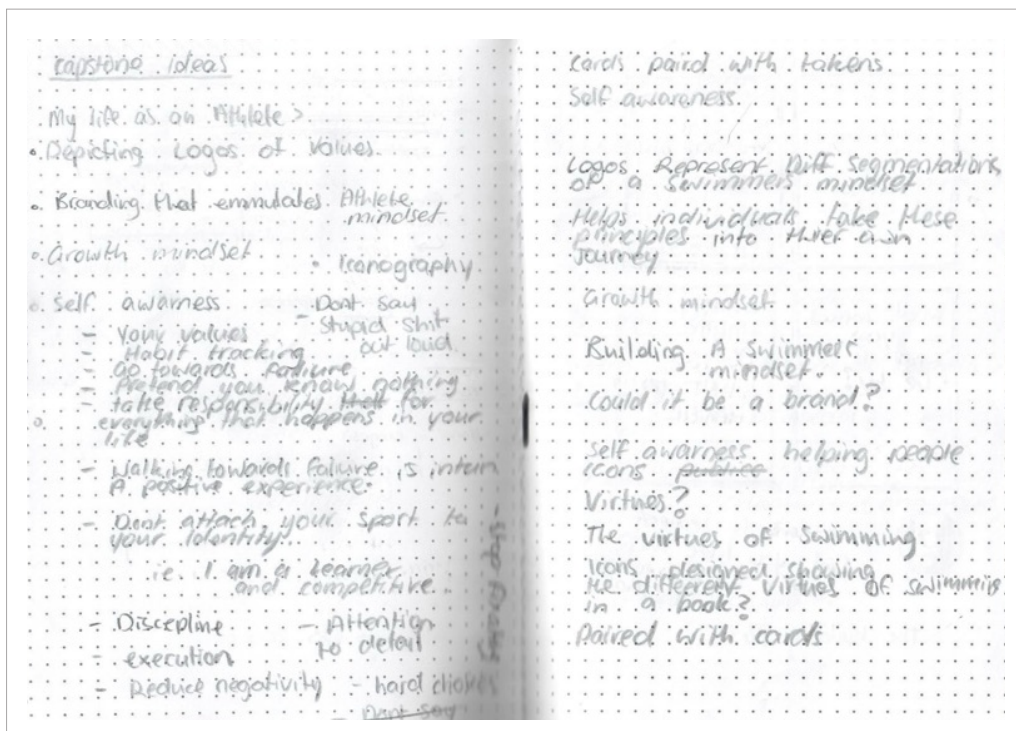 Capstone ideas
My life as an Athlete >
Depicting Logos of Values
Branding that emmulates Athlete
mindset
Growth mindset
Iconography
Self awarness
- Your values
- Habit tracking
- Go towards failiure
- Pretend you know nothing
- take responsibility for
everything that happens in your
life
- Dont say
Stupid shit
out loud
- Walking towards failure is intern
A positive experience.
- Dont attach your sport to
your identity
ie. I am a learner
and competitive.
- Discepline
- execution
- Reduce negativity
- Attention
to detail
- hard choices
- Dont say
- Stop
Cards paired with tokens
Self awareness
Logos Represent Diff Segmentations
of a Swimmers mindset
Helps individuals take these
principles into their own
Journey
Growth mindset
Building A Swimmers
mindset.
Could it be a brand?
Self awarness helping people
icons
Virtues?
The virtues of Swimming.
Icons designed showing
the different virtues of swimming
in a book?
Paired with cards